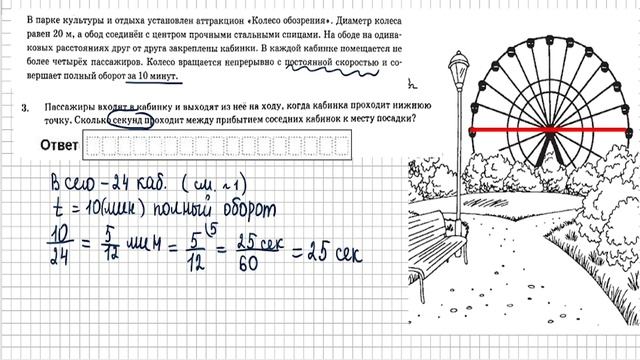 В парке культуры и отдыха установлен аттракцион «Колесо обозрения». Диаметр колеса
равен 20 м, а обод соединён с центром прочными стальными спицами. На ободе на одина-
ковых расстояниях друг от друга закреплены кабинки. В каждой кабинке помещается не
более четырёх пассажиров. Колесо вращается непрерывно с постоянной скоростью и со-
вершает полный оборот за 10 минут.
3. Пассажиры входят в кабинку и выходят из неё на ходу, когда кабинка проходит нижнюю
точку. Сколько секунд проходит между прибытием соседних кабинок к месту посадки?
Ответ
Всего – 24 каб. (см. №1)
t = 10(мин) полный оборот
10/24 = 5/12 мин = 5/12 (5 = 25 сек/60 = 25 сек